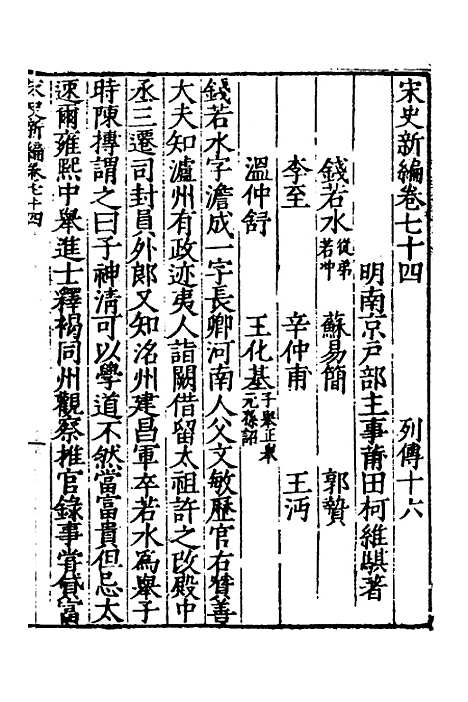 宋史新編卷七十四　列傳十六
明南京戶部主事莆田柯維騏著
錢若水從弟若冲　蘇易簡　郭贄
李至　辛仲甫　王沔
溫仲舒　王化基子舉正舉元孫詔
錢若水字澹成一字長卿河南人父文敏歷官右贊善
大夫知瀘州有政迹夷人詣闕借留太祖許之改殿中
丞三遷司封員外郎又知洺州建昌軍卒若水為舉子
時陳摶謂之曰子神清可以學道不然當富貴但忌太
速爾雍熙中舉進士釋褐同州觀察推官錄事嘗貸富
宋史新編卷七十四
一